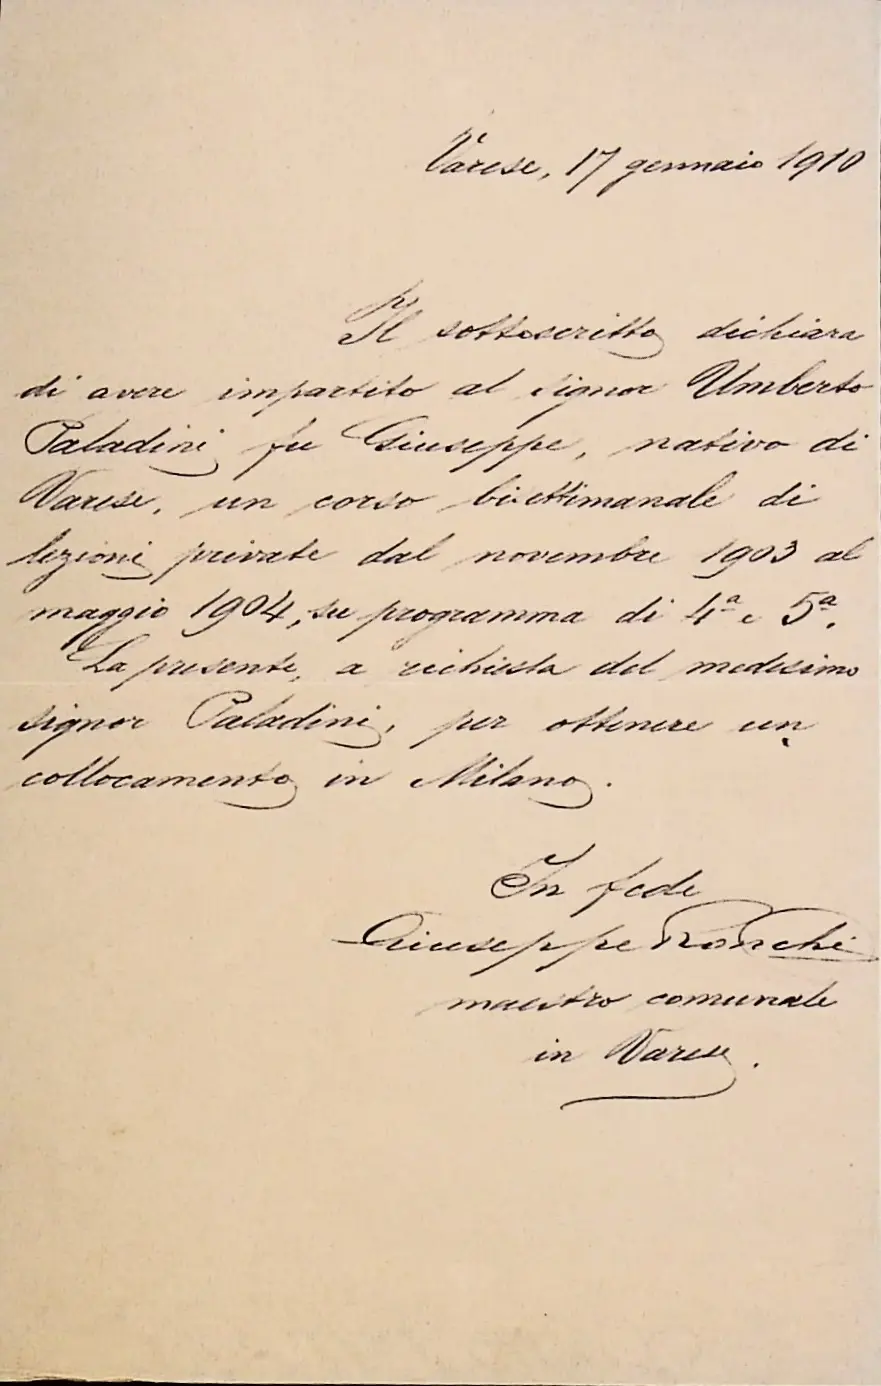 Varese, 17 gennaio 1910
Il sottoscritto dichiara
di avere impartito al signor Umberto
Paladini fu Giuseppe, nativo di
Varese, un corso bisettimanale di
lezioni private dal novembre 1903 al
maggio 1904, su programma di 4ª e 5ª.
La presente, a richiesta del medesimo
signor Paladini, per ottenere un
collocamento in Milano.
In fede
Giuseppe Ronchi
maestro comunale
in Varese.